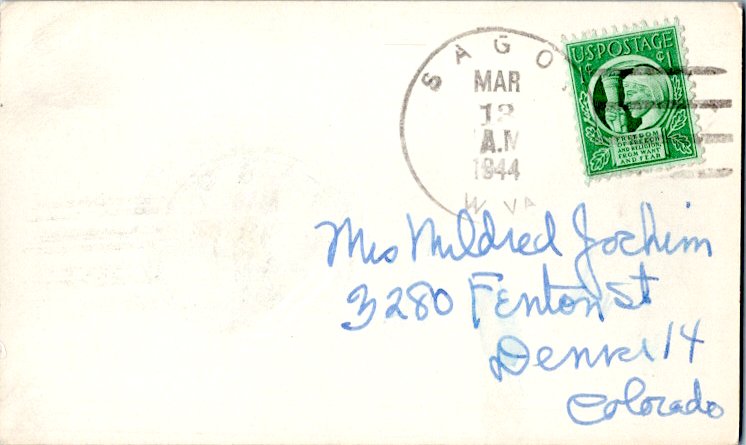 SAGO
MAR
13
A.M
1944
W. VA.
U.S. POSTAGE
1¢ ¢1
FREEDOM
OF SPEECH
AND RELIGION,
FROM WANT
AND FEAR
Mrs Mildred Jochim
3280 Fenton St
Denver 14
Colorado